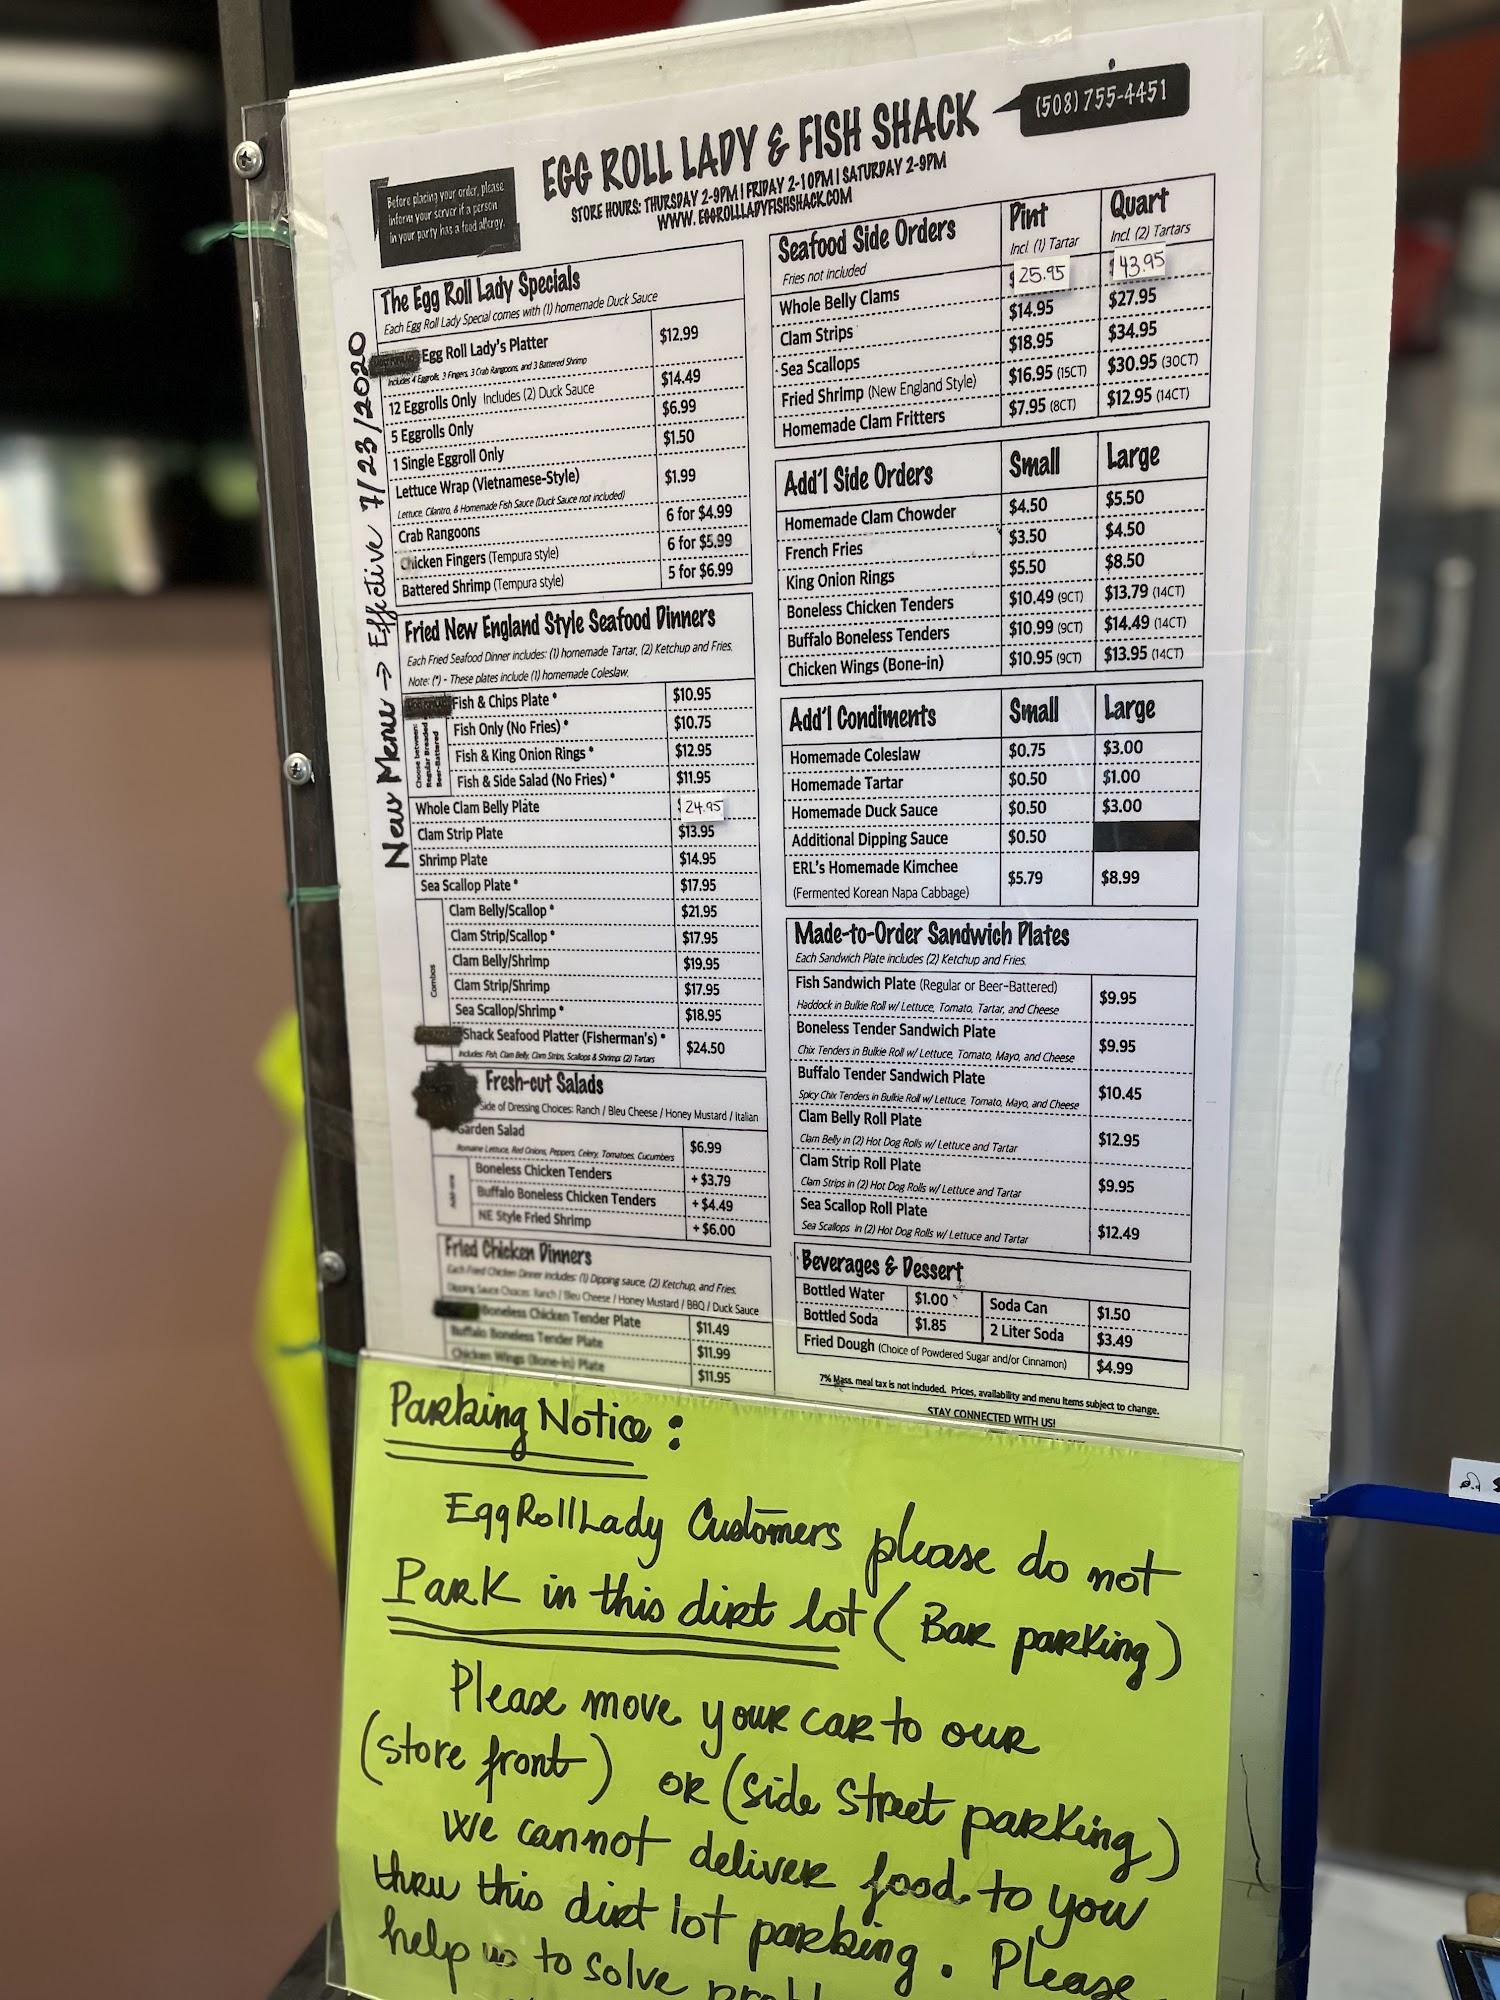 EGG ROLL LADY & FISH SHACK
(508) 755-4451
STORE HOURS: THURSDAY 2-9PM | FRIDAY 2-10PM | SATURDAY 2-9PM
WWW. EGGROLLLADYFISHSHACK.COM
Before placing your order, please
inform your server if a person
in your party has a food allergy.
New Menu → Effective 7/23/2020
The Egg Roll Lady Specials
Each Egg Roll Lady Special comes with (1) homemade Duck Sauce
Egg Roll Lady's Platter $12.99
Includes 4 Eggrolls, 3 Fingers, 3 Crab Rangoons, and 3 Battered Shrimp
12 Eggrolls Only Includes (2) Duck Sauce $14.49
5 Eggrolls Only $6.99
1 Single Eggroll Only $1.50
Lettuce Wrap (Vietnamese-Style) $1.99
Lettuce, Cilantro, & Homemade Fish Sauce (Duck Sauce not included)
Crab Rangoons 6 for $4.99
Chicken Fingers (Tempura style) 6 for $5.99
Battered Shrimp (Tempura style) 5 for $6.99
Fried New England Style Seafood Dinners
Each Fried Seafood Dinner includes: (1) homemade Tartar, (2) Ketchup and Fries.
Note: (*) - These plates include (1) homemade Coleslaw.
Choose between
Regular Breaded
Beer-Battered
Fish & Chips Plate * $10.95
Fish Only (No Fries) * $10.75
Fish & King Onion Rings * $12.95
Fish & Side Salad (No Fries) * $11.95
Whole Clam Belly Plate $ 24.95
Clam Strip Plate $13.95
Shrimp Plate $14.95
Sea Scallop Plate * $17.95
Combos
Clam Belly/Scallop * $21.95
Clam Strip/Scallop * $17.95
Clam Belly/Shrimp $19.95
Clam Strip/Shrimp $17.95
Sea Scallop/Shrimp * $18.95
Shack Seafood Platter (Fisherman's) * $24.50
Includes: Fish, Clam Belly, Clam Strips, Scallops & Shrimp; (2) Tartars
Fresh-cut Salads
Side of Dressing Choices: Ranch / Bleu Cheese / Honey Mustard / Italian
Garden Salad $6.99
Romaine Lettuce, Red Onions, Peppers, Celery, Tomatoes, Cucumbers
Add-ons
Boneless Chicken Tenders + $3.79
Buffalo Boneless Chicken Tenders + $4.49
NE Style Fried Shrimp + $6.00
Fried Chicken Dinners
Each Fried Chicken Dinner includes: (1) Dipping sauce, (2) Ketchup, and Fries.
Dipping Sauce Choices: Ranch / Bleu Cheese / Honey Mustard / BBQ / Duck Sauce
Boneless Chicken Tender Plate $11.49
Buffalo Boneless Tender Plate $11.99
Chicken Wings (Bone-in) Plate $11.95
Seafood Side Orders Pint Quart
Fries not included Incl. (1) Tartar Incl. (2) Tartars
Whole Belly Clams $ 25.95 $ 43.95
Clam Strips $14.95 $27.95
Sea Scallops $18.95 $34.95
Fried Shrimp (New England Style) $16.95 (15CT) $30.95 (30CT)
Homemade Clam Fritters $7.95 (8CT) $12.95 (14CT)
Add'l Side Orders Small Large
Homemade Clam Chowder $4.50 $5.50
French Fries $3.50 $4.50
King Onion Rings $5.50 $8.50
Boneless Chicken Tenders $10.49 (9CT) $13.79 (14CT)
Buffalo Boneless Tenders $10.99 (9CT) $14.49 (14CT)
Chicken Wings (Bone-in) $10.95 (9CT) $13.95 (14CT)
Add'l Condiments Small Large
Homemade Coleslaw $0.75 $3.00
Homemade Tartar $0.50 $1.00
Homemade Duck Sauce $0.50 $3.00
Additional Dipping Sauce $0.50
ERL's Homemade Kimchee $5.79 $8.99
(Fermented Korean Napa Cabbage)
Made-to-Order Sandwich Plates
Each Sandwich Plate includes (2) Ketchup and Fries.
Fish Sandwich Plate (Regular or Beer-Battered) $9.95
Haddock in Bulkie Roll w/ Lettuce, Tomato, Tartar, and Cheese
Boneless Tender Sandwich Plate $9.95
Chix Tenders in Bulkie Roll w/ Lettuce, Tomato, Mayo, and Cheese
Buffalo Tender Sandwich Plate $10.45
Spicy Chix Tenders in Bulkie Roll w/ Lettuce, Tomato, Mayo, and Cheese
Clam Belly Roll Plate $12.95
Clam Belly in (2) Hot Dog Rolls w/ Lettuce and Tartar
Clam Strip Roll Plate $9.95
Clam Strips in (2) Hot Dog Rolls w/ Lettuce and Tartar
Sea Scallop Roll Plate $12.49
Sea Scallops in (2) Hot Dog Rolls w/ Lettuce and Tartar
Beverages & Dessert
Bottled Water $1.00 Soda Can $1.50
Bottled Soda $1.85 2 Liter Soda $3.49
Fried Dough (Choice of Powdered Sugar and/or Cinnamon) $4.99
7% Mass. meal tax is not included. Prices, availability and menu items subject to change.
STAY CONNECTED WITH US!
Parking Notice :
EggRollLady Customers please do not
Park in this dirt lot ( Bar parking )
Please move your car to our
(store front) or (side street parking)
We cannot deliver food to you
thru this dirt lot parking. Please
help us to solve